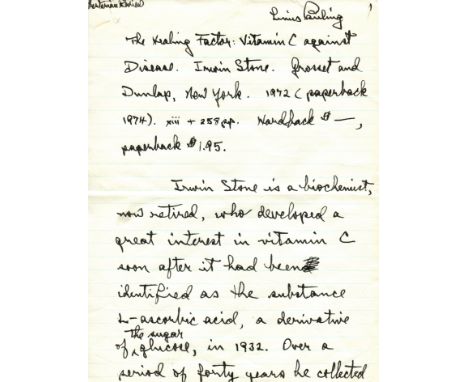 Linus Pauling
The Healing Factor: Vitamin C against
Disease. Irwin Stone. Grosset and
Dunlap, New York. 1972 (paperback
1974). xiii + 258 pp. Hardback $ —,
paperback $1.95.
Irwin Stone is a biochemist,
now retired, who developed a
great interest in vitamin C
soon after it had been
identified as the substance
L-ascorbic acid, a derivative
of the sugar glucose, in 1932. Over a
period of forty years he collected